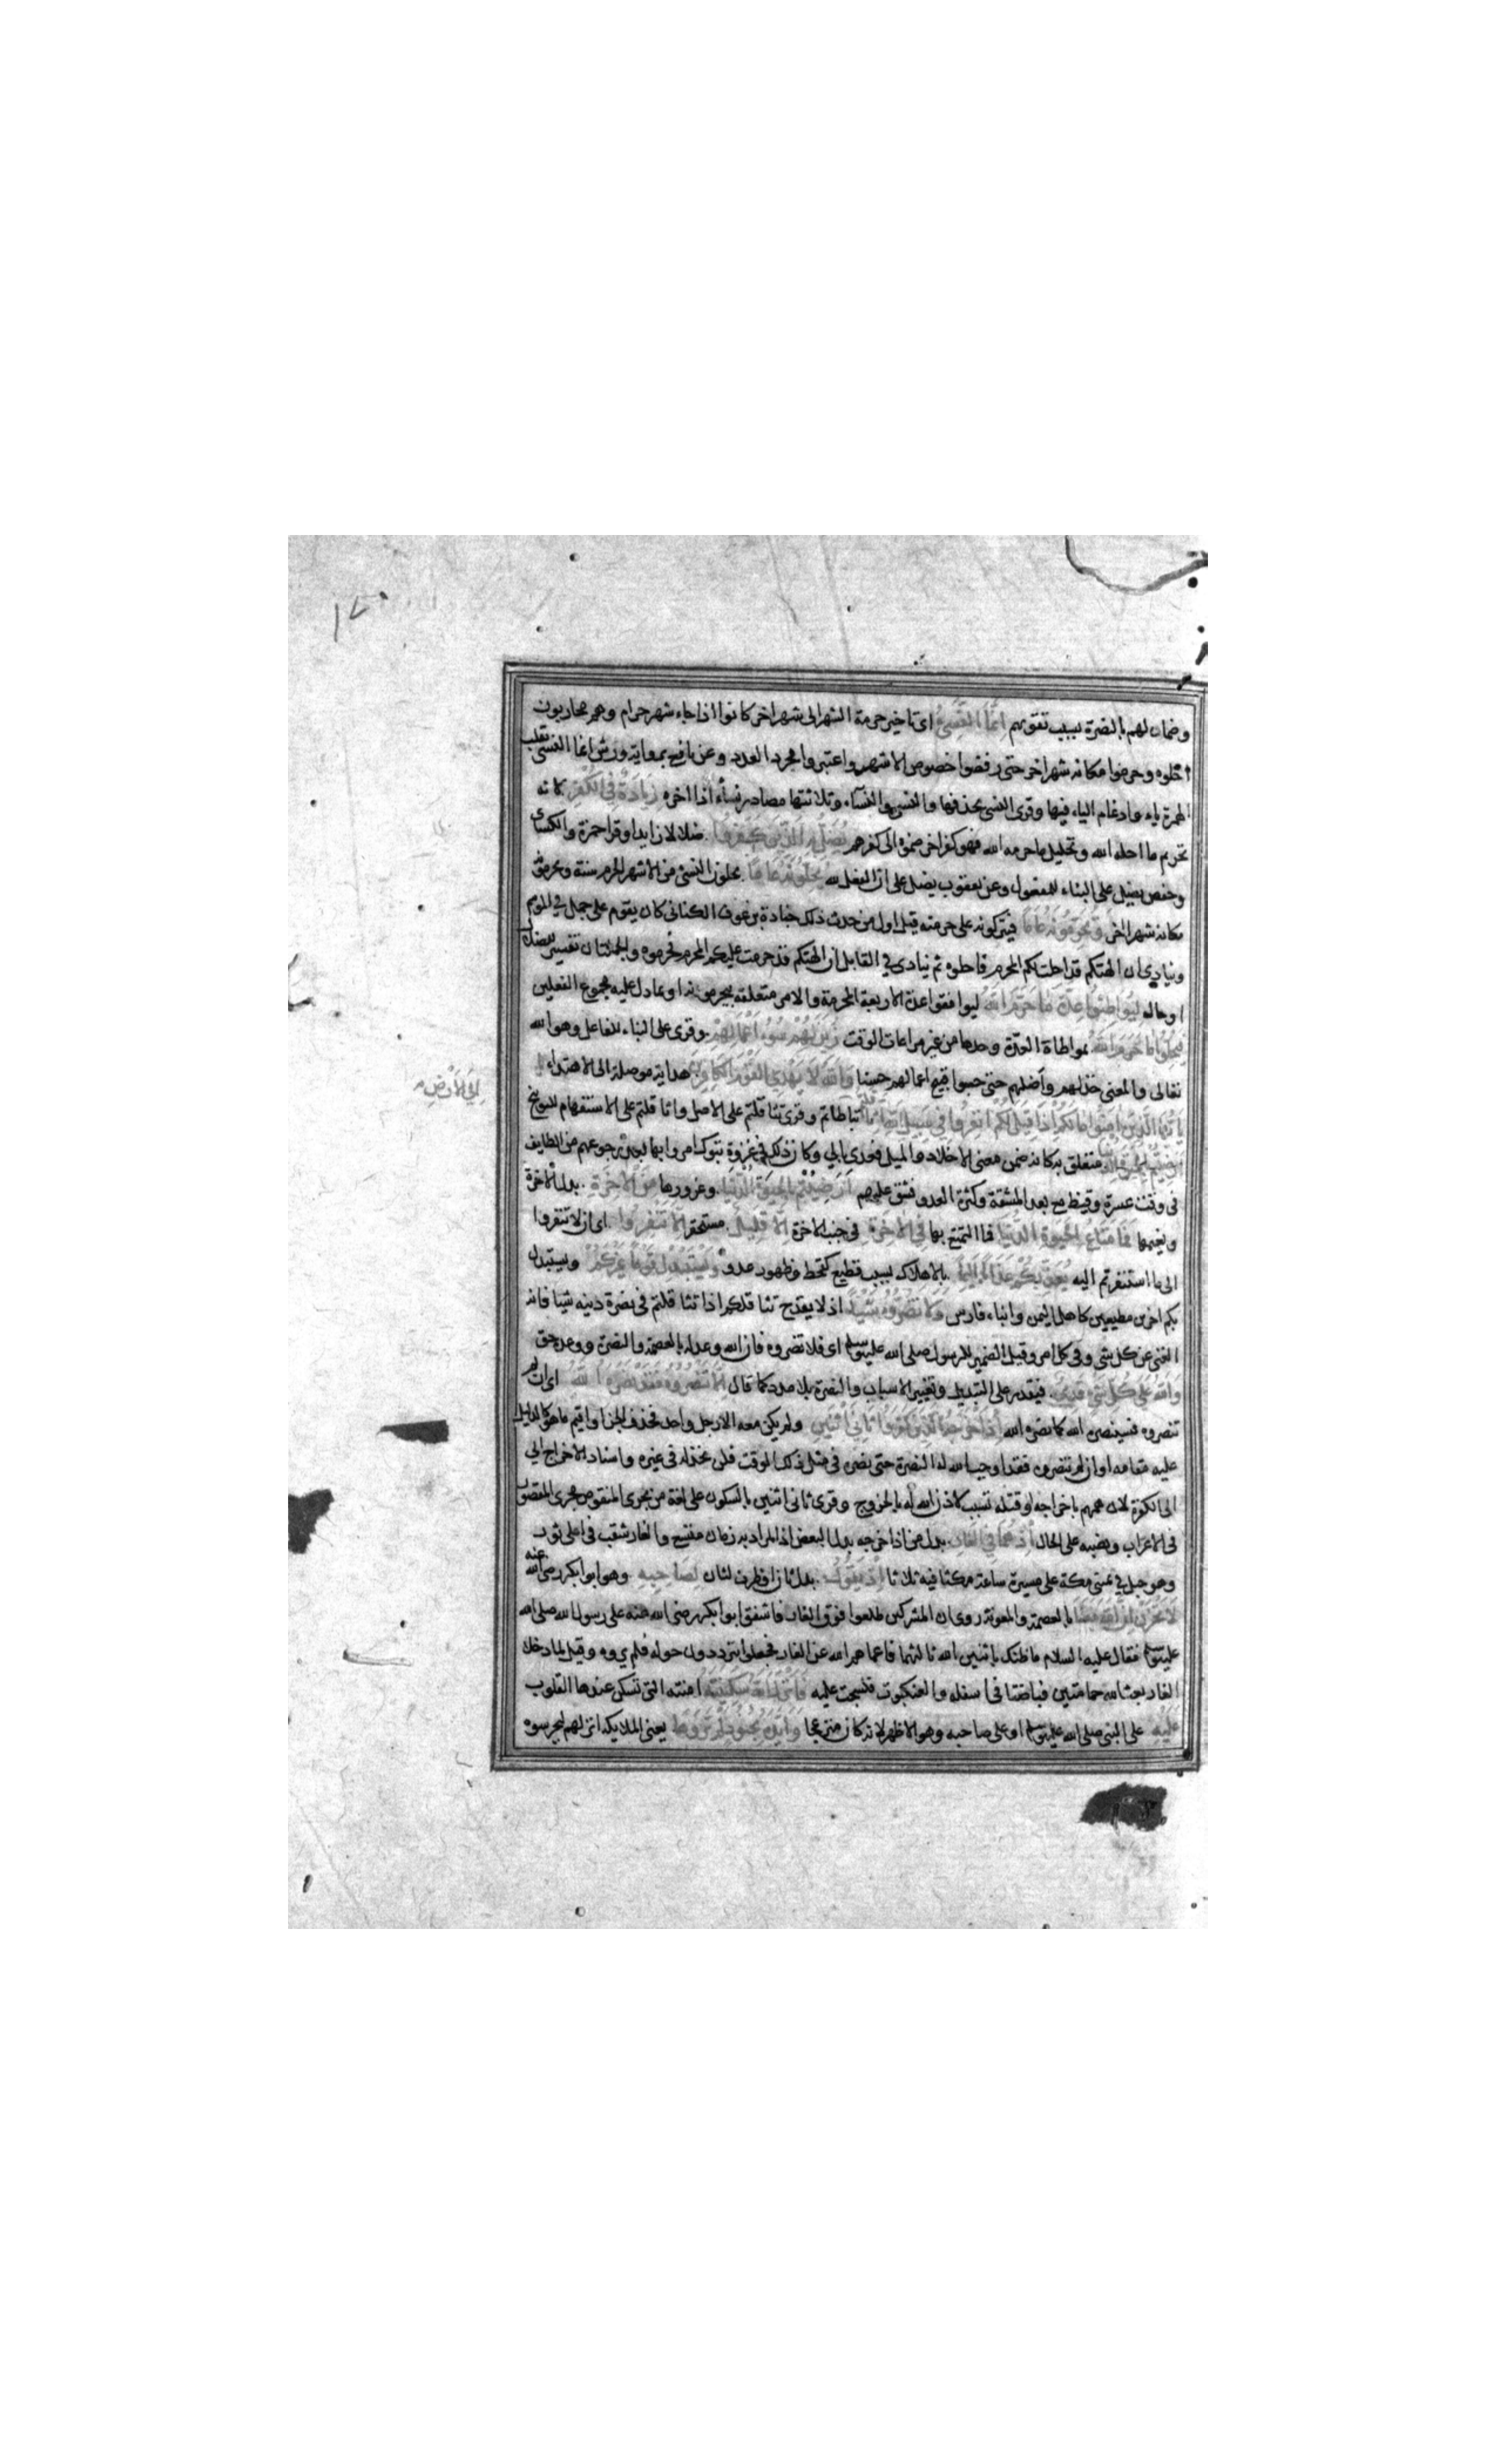 ١٧٠
وضمان لهم بالنصرة بسبب تقويهم إنما النسئ اى تاخير حرمة الشهر الى شهر اخر كانوا اذا جاء شهر حرام وهم محاربون
احلوه وحرموا مكانه شهرا اخر حتى رفضوا خصوص الاشهر واعتبروا مجرد العدد وعن نافع برواية ورش انما النسى بقلب
الهمزة ياء وادغام الياء فيها وقرى النسى بحذفها والنسئ والنساء وثلاثتها مصادر نسأه اذا اخره زيادة في الكفر لانه
تحريم ما احله الله وتحليل ما حرمه الله فهو كفر اخر ضموه الى كفرهم يضل به الذين كفروا ضلالا زايدا وقرا حمزة والكسائ
وحفص يضل على البناء للمفعول وعن يعقوب يضل على ان الفعل لله يحلونه عاما يحلون النسئ من الاشهر الحرم سنة ويحرمون
مكانه شهرا اخر ويحرمونه عاما فيتركونه على حرمته قيل اول من حدث ذلك جنادة بن عوف الكنانى كان يقوم على جمل في الموسم
وينادى ان الهتكم قد احلت لكم المحرم فاحلوه ثم ينادى في القابل ان الهتكم قد حرمت عليكم المحرم فحرموه والجملتان تفسير للضلال
او حاله ليواطئوا عدة ما حرم الله ليوافقوا عدة الاربعة المحرمة والامر متعلقة بيحرمونه او بما دل عليه مجموع الفعلين
فيحلوا ما حرم الله بمواطاة العدة وحدها من غير مراعات الوقت زين لهم سوء اعمالهم وقرى على البناء للفاعل وهو الله
تعالى والمعنى خذلهم واضلهم حتى حسبوا قبيح اعمالهم حسنا والله لا يهدي القوم الكافرين هداية موصلة الى الاهتداء
يا ايها الذين امنوا ما لكم اذا قيل لكم انفروا في سبيل الله اثاقلتم تباطاتم وقرى تثاقلتم على الاصل واثاقلتم على الاستفهام للتوبيخ
الى الارض متعلق به كانه ضمن معنى الاخلاد والميل فعدى بالى وكان ذلك في غزوة تبوك امروا بها بعد رجوعهم من الطايف
فى وقت عسرة وقيظ مع بعد المشقة وكثرة العدو فشق عليهم ارضيتم بالحيوة الدنيا وغرورها من الاخرة بدل الاخرة
ونعيمها فما متاع الحيوة الدنيا فما التمتع بها في الاخرة في جنب الاخرة الا قليل مستحقر الا تنفروا اى ان لا تنفروا
الى ما استنفرتم اليه يعذبكم عذابا اليما بالاهلاك بسبب فظيع كقحط وظهور عدو ويستبدل قوما غيركم ويستبدل
بكم اخرين مطيعين كاهل اليمن وابناء فارس ولا تضروه شيئا اذ لا يقدح تثاقلكم اذا تثاقلتم فى نصرة دينه شيا فانه
الغنى عن كل شى وفى كل امر وقيل الضمير للرسول صلى الله عليه وسلم اى فلا تضروه فان الله وعد له بالعصمة والنصرة ووعده حق
والله على كل شيء قدير فيقدر على التبديل وتغيير الاسباب والنصرة بلا مدد كما قال الا تنصروه فقد نصره الله اى ان لم
تنصروه فسينصره الله كما نصره الله اذ اخرجه الذين كفروا ثاني اثنين ولم يكن معه الا رجل واحد فحذف الجزا واقيم ما هو كالدليل
عليه مقامه او ان لم تنصروه فقد اوجب الله له النصرة حتى نصره فى مثل ذلك الوقت فلن يخذله فى غيره واسناد الاخراج الى
الى الكفرة لان همهم باخراجه او قتله تسبب لاذن الله له بالخروج وقرى ثانى اثنين بالسكون على لغة من يجرى المنقوص مجرى المقصور
فى الاعراب ونصبه على الحال اذ هما في الغار بدل من اذ اخرجه بدل البعض اذ المراد به زمان متسع والغار ثقب فى اعلى ثور
وهو جبل في يمنى مكة على مسيرة ساعة مكثا فيه ثلاثا اذ يقول بدل ثان او ظرف لثان لصاحبه وهو ابو بكر رضى الله عنه
لا تحزن ان الله معنا بالعصمة والمعونة روى ان المشركين طلعوا فوق الغار فاشفق ابو بكر رضى الله عنه على رسول الله صلى الله
عليه وسلم فقال عليه السلام ما ظنك باثنين الله ثالثهما فاعماهم الله عن الغار فجعلوا يترددون حوله فلم يروه وقيل لما دخلا
الغار بعث الله حمامتين فباضتا فى اسفله والعنكبوت فنسجت عليه فانزل الله سكينته امنته التى تسكن عندها القلوب
عليه على النبى صلى الله عليه وسلم او على صاحبه وهو الاظهر لانه كان منزعجا وايده بجنود لم تروها يعنى الملايكة انزلهم ليحرسوه
الى الارض